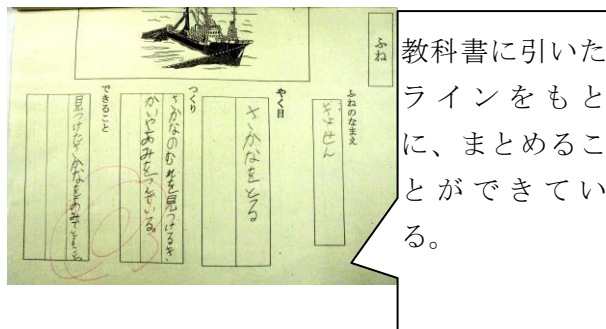 ふね
ふねのなまえ
ぎょせん
やく目
さかなをとる
つくり
さかなのむれを見つけるき
かいやあみをつんでいる。
できること
見つけたさかなをあみでとる
教科書に引いた
ラインをもと
に、まとめるこ
とができてい
る。